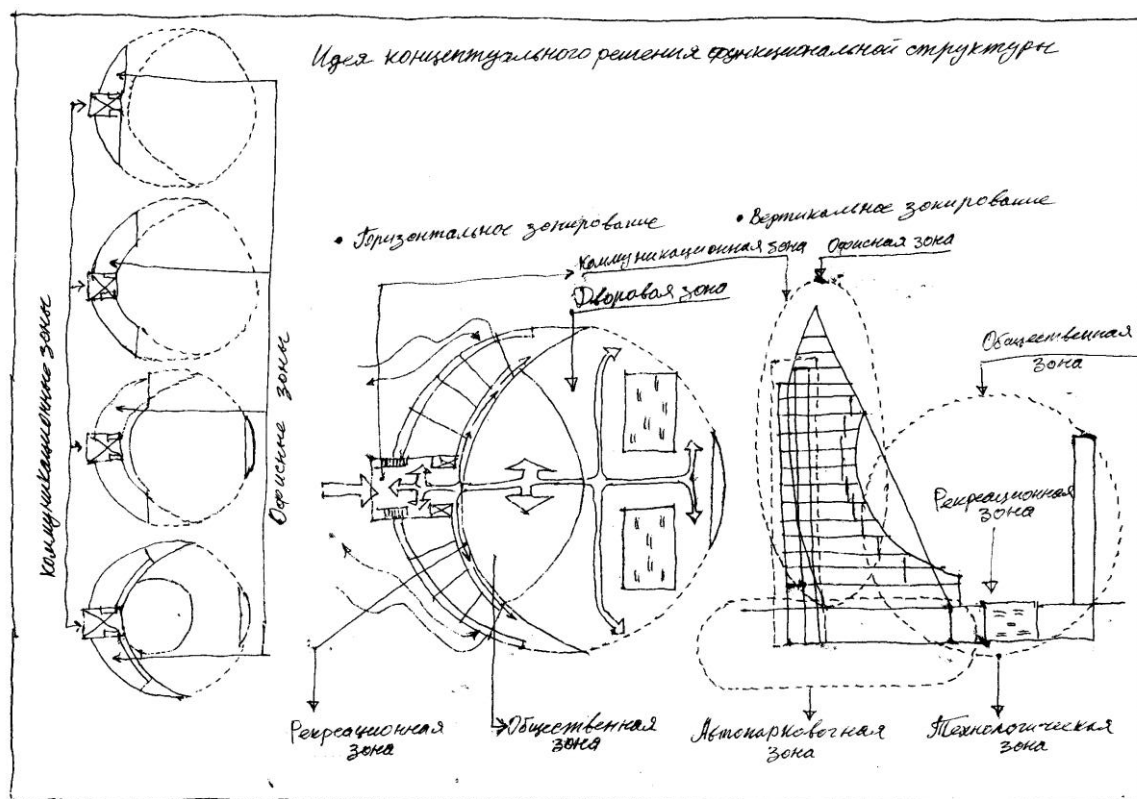 Идея концептуального решения функциональной структуры
Коммуникационные зоны
Офисные зоны
• Горизонтальное зонирование
• Вертикальное зонирование
Коммуникационная зона
Офисная зона
Дворовая зона
Общественная
зона
Рекреационная
зона
Рекреационная
зона
Общественная
зона
Автопарковочная
зона
Технологическая
зона